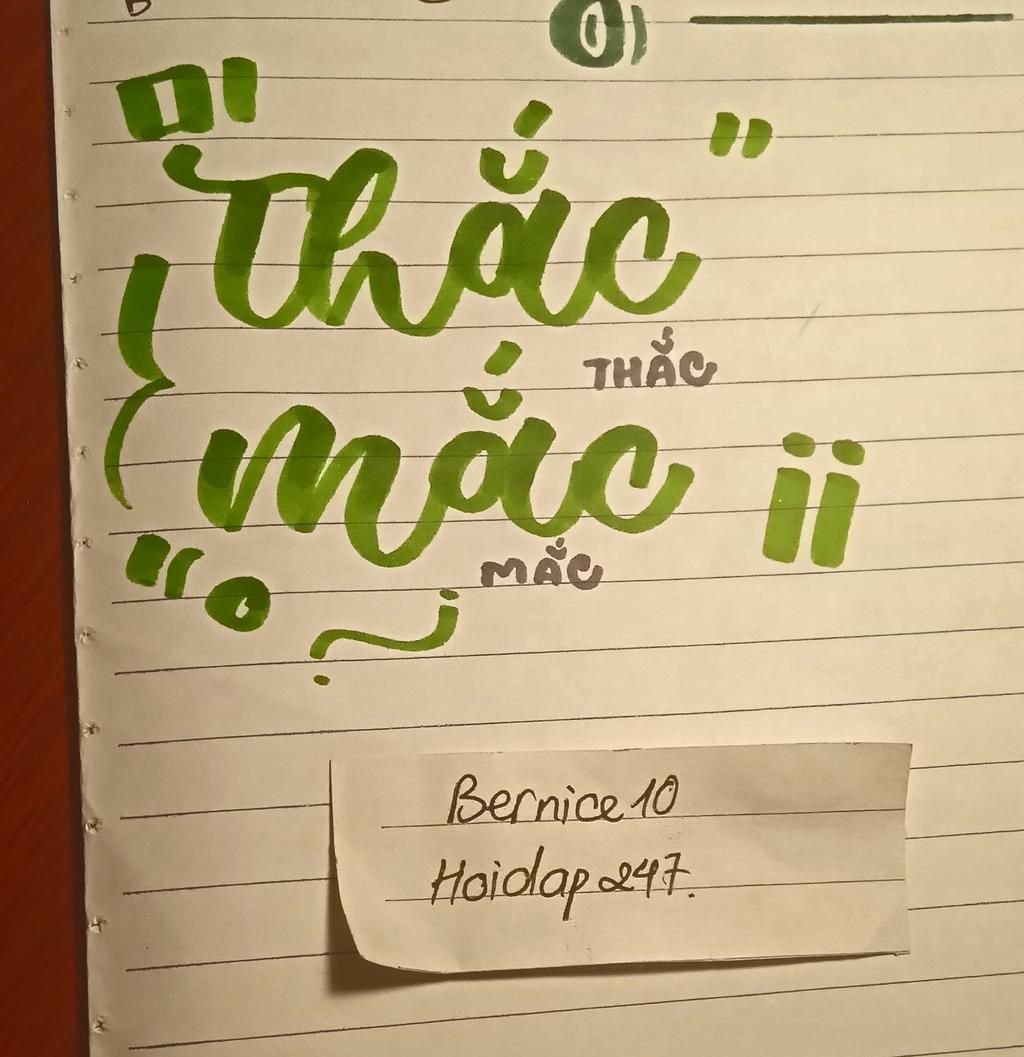 Thắc
THẮC
mắc
MẮC
Bernice 10
Hoidap 247.